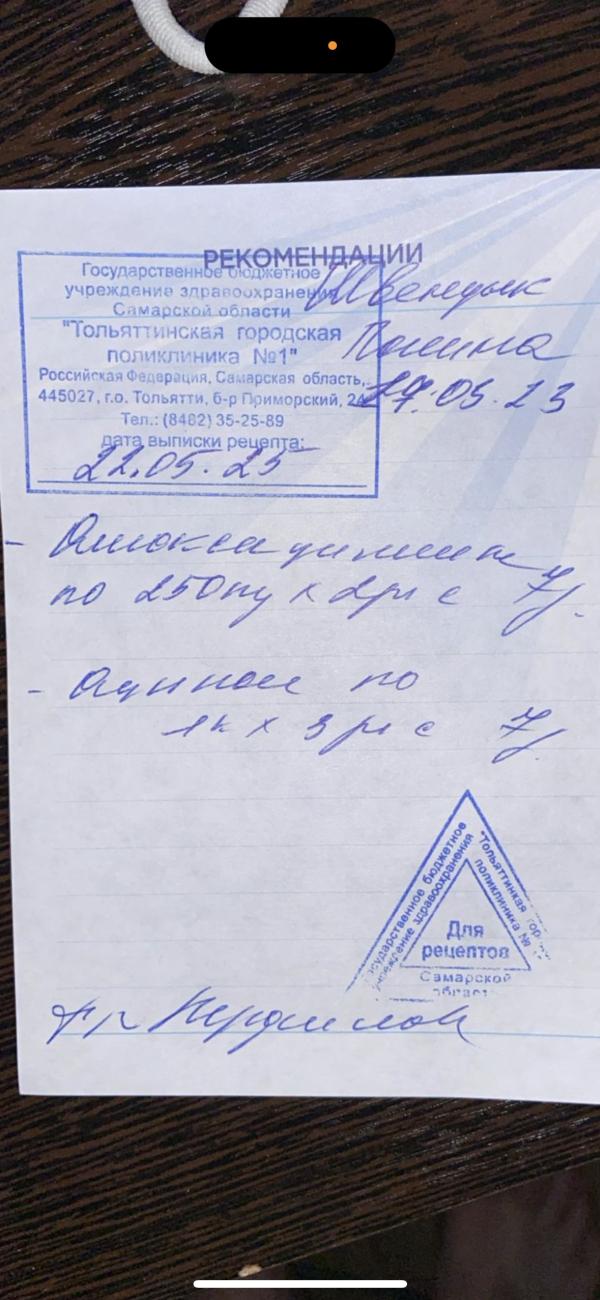 РЕКОМЕНДАЦИИ
Государственное бюджетное
учреждение здравоохранения
Самарской области
"Тольяттинская городская
поликлиника №1"
Российская Федерация, Самарская область,
445027, г.о. Тольятти, б-р Приморский, 24
Тел.: (8482) 35-25-89
дата выписки рецепта:
22.05.25
Полина
05.23
- Амоксициллин
по 250 х 2р с 7
- Аципол по
1к х 3р с 7
Государственное бюджетное
учреждение здравоохранения
"Тольяттинкая гор
поликлиника №
Для
рецептов
Самарской
област